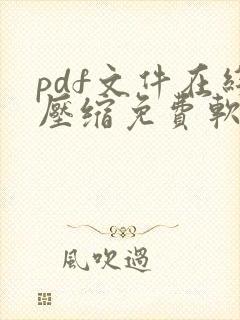 pdf文件在
壓缩免費軟
風吹過